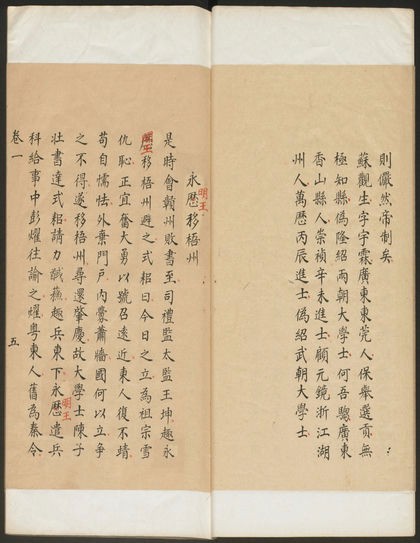 則儼然帝制矣
蘇觀生字宇霖廣東東莞人保舉選貢無
極知縣偽隆紹兩朝大學士何吾騶廣東
香山縣人崇禎辛未進士顧元鏡浙江湖
州人萬歷丙辰進士偽紹武朝大學士
明王
永歷移梧州
是時會贛州敗書至司禮監太監王坤趣永
移梧州避之式耜曰今日之立為祖宗雪
仇恥正宜奮大勇以號召遠近東人復不靖
苟自懦怯外棄門戶內釁蕭牆國何以立爭
之不得遂移梧州尋還肇慶故大學士陳子
明王
壯書達式耜請力馘蘇趣兵東下永歷遣兵
科給事中彭燿往諭之燿粵東人舊為秦令
卷一 五